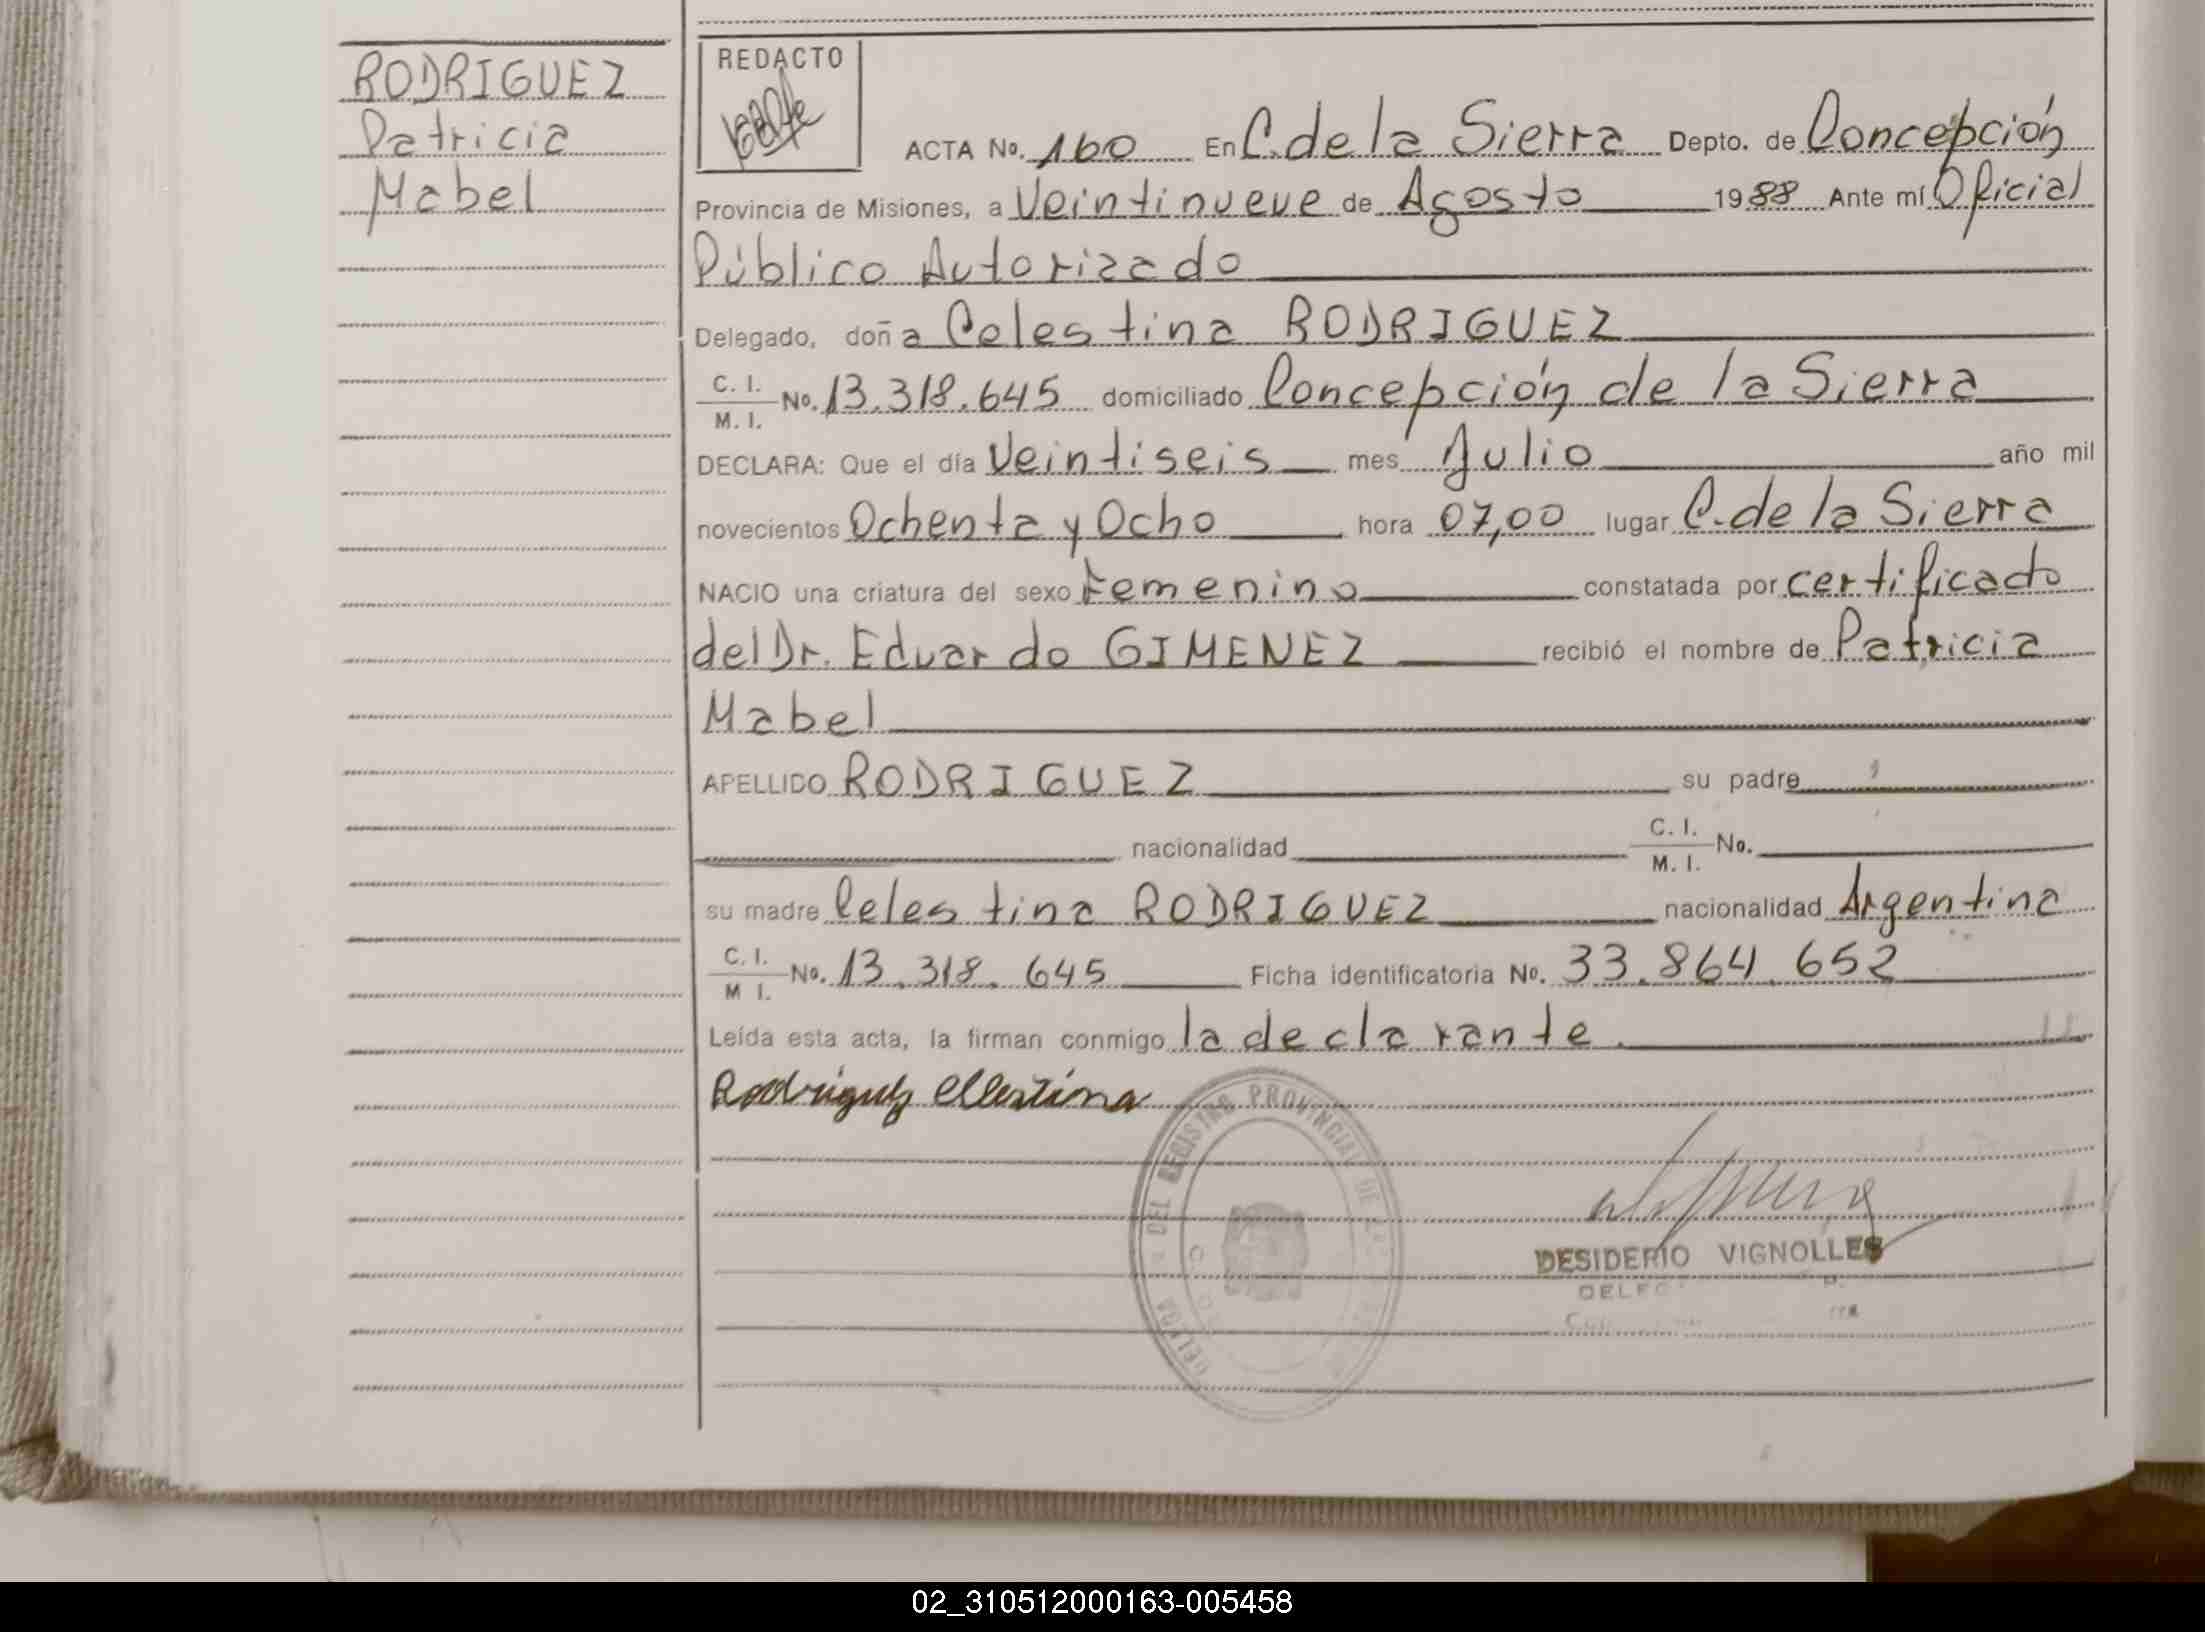 RODRIGUEZ
Patricia
Mabel
REDACTO
ACTA No. 160 En C. de la Sierra Depto. de Concepción
Provincia de Misiones, a Veintinueve de Agosto 1988 Ante mí Oficial
Público Autorizado
Delegado, doña Celestina RODRIGUEZ
C. I. M. I. No. 13.318.645 domiciliado Concepción de la Sierra
DECLARA: Que el día Veintiseis mes Julio año mil
novecientos Ochenta y Ocho hora 07,00 lugar C. de la Sierra
NACIO una criatura del sexo Femenino constatada por certificado
del Dr. Eduardo GIMENEZ recibió el nombre de Patricia
Mabel
APELLIDO RODRIGUEZ su padre
nacionalidad C. I. M. I. No.
su madre Celestina RODRIGUEZ nacionalidad Argentina
C. I. M I. No. 13.318.645 Ficha identificatoria No. 33.864.652
Leída esta acta, la firman conmigo la declarante.
Rodriguez Celestina
DEL REGISTRO PROVINCIAL DE
DESIDERIO VIGNOLLES
02_310512000163-005458